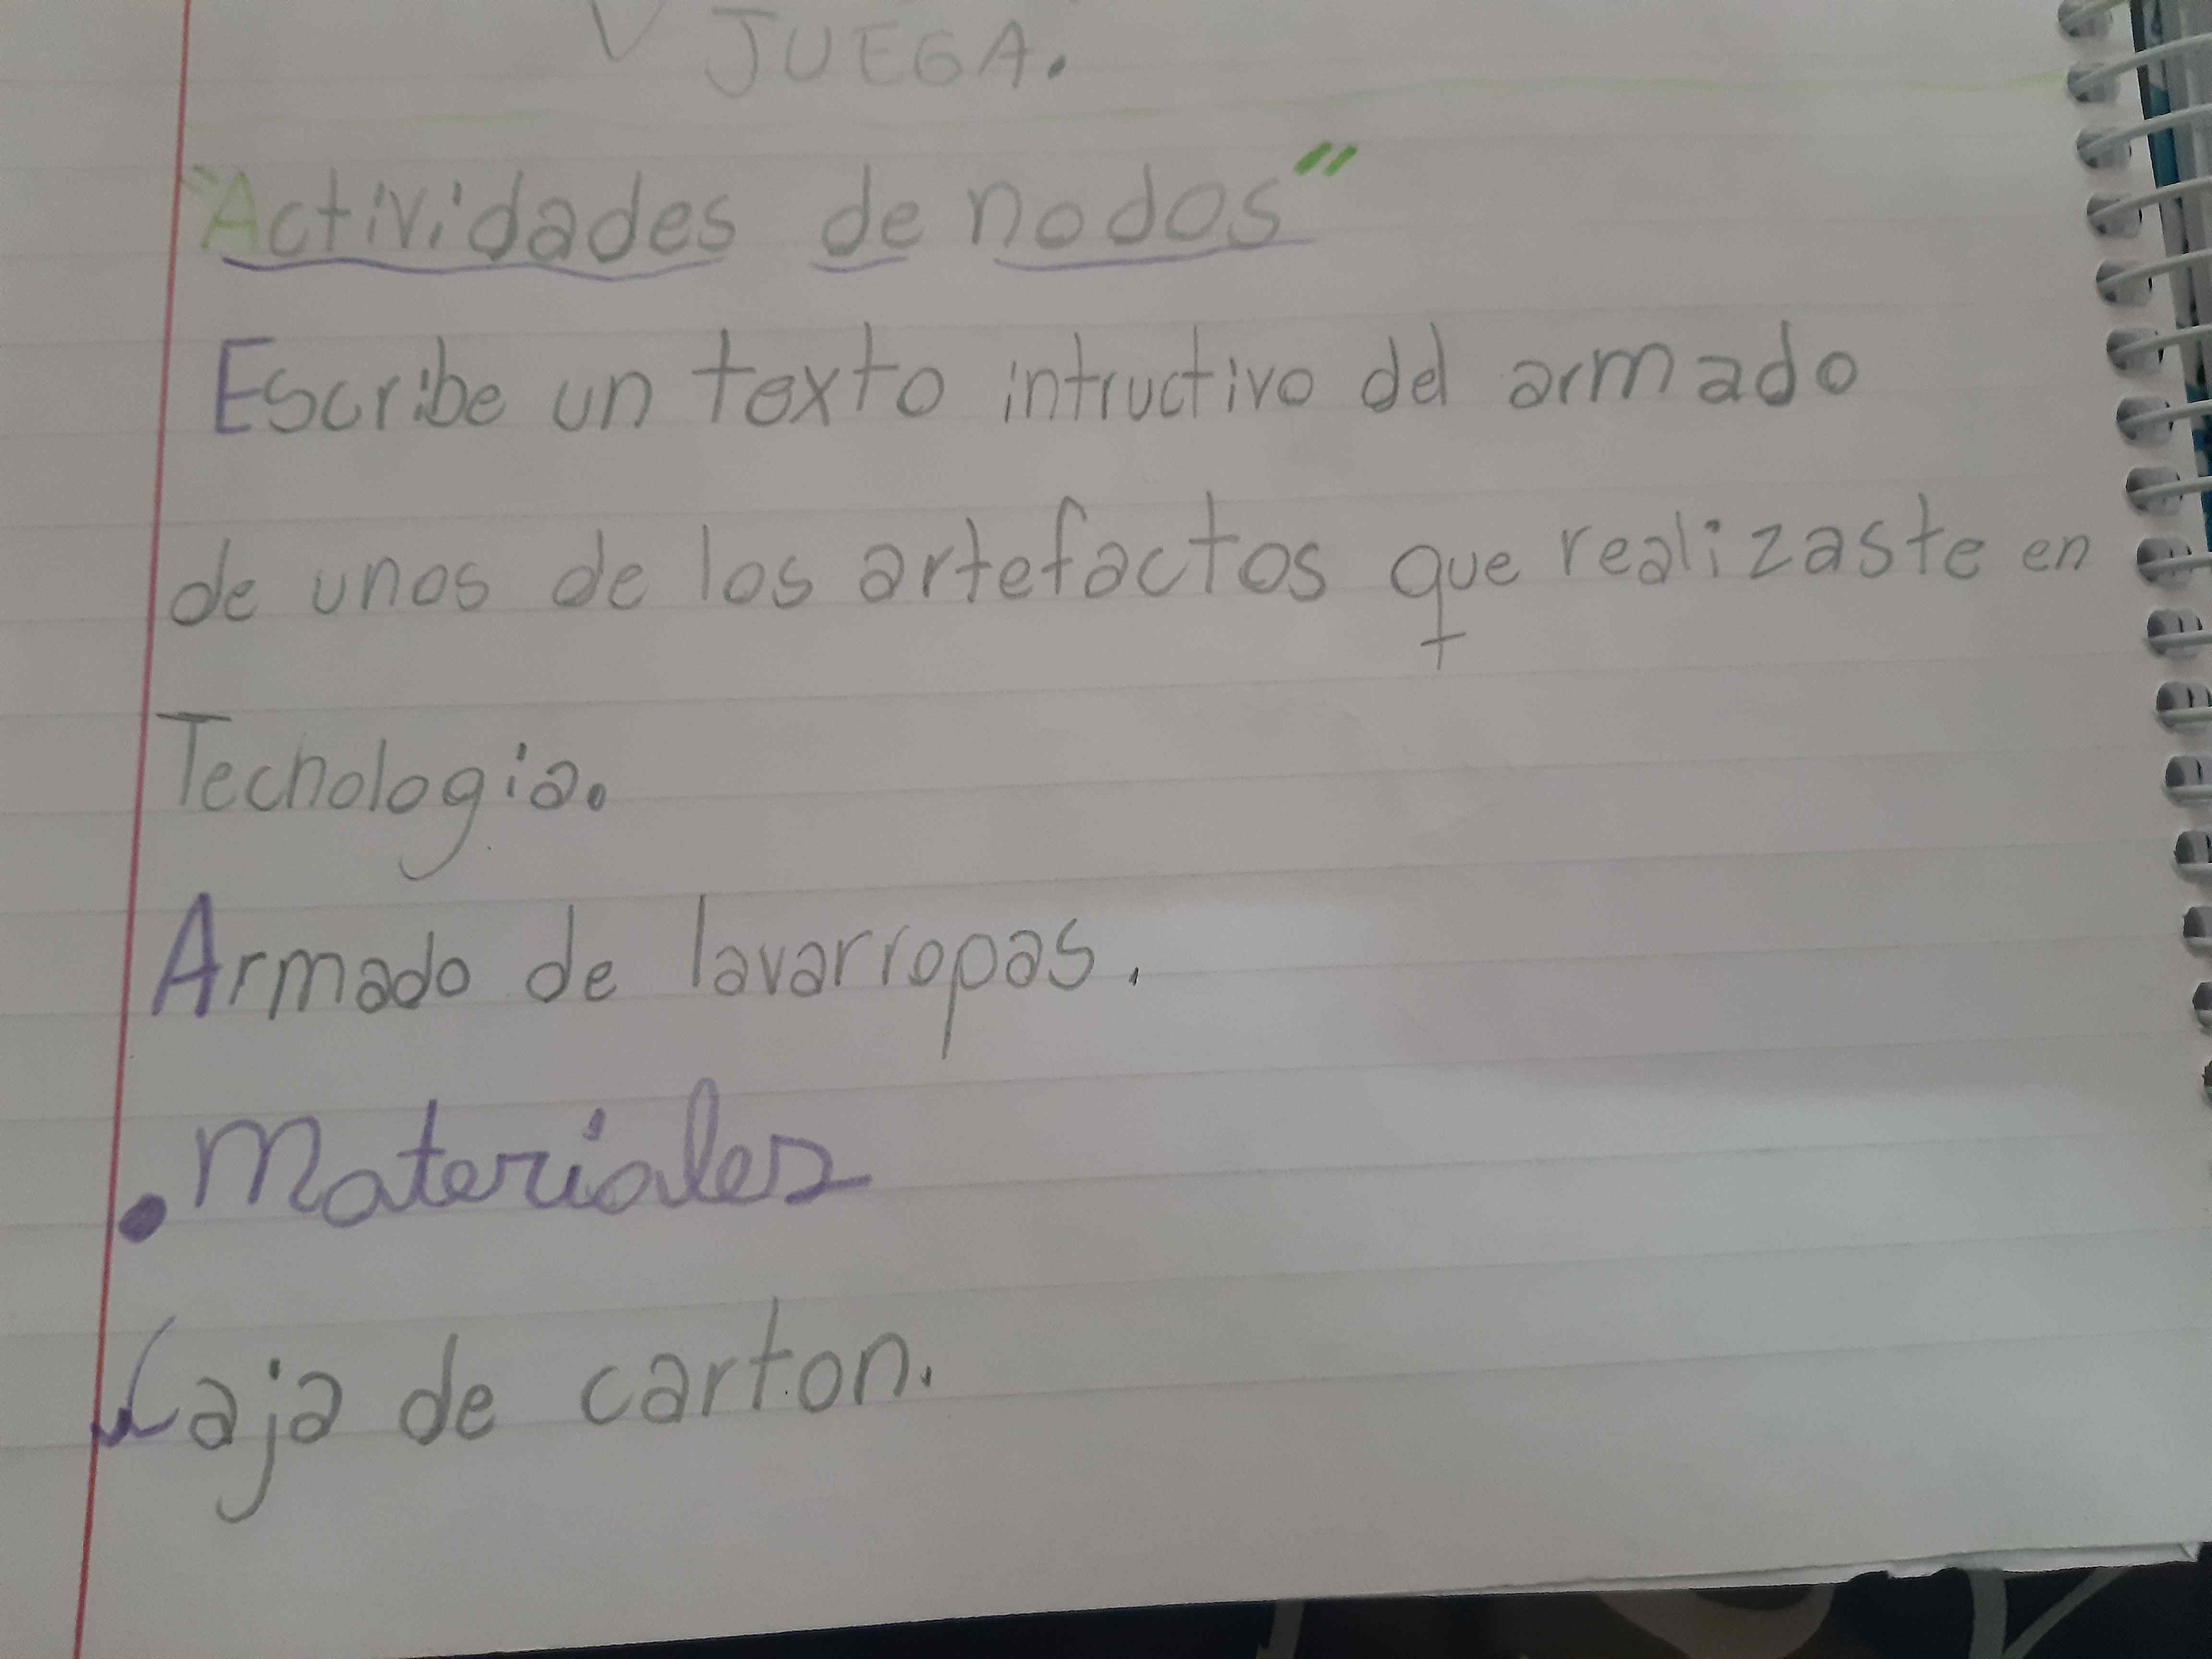 JUEGA.
"Actividades de nodos"
Escribe un texto intructivo del armado
de unos de los artefactos que realizaste en
Techologia.
Armado de lavarropas.
• Materiales
Caja de carton.